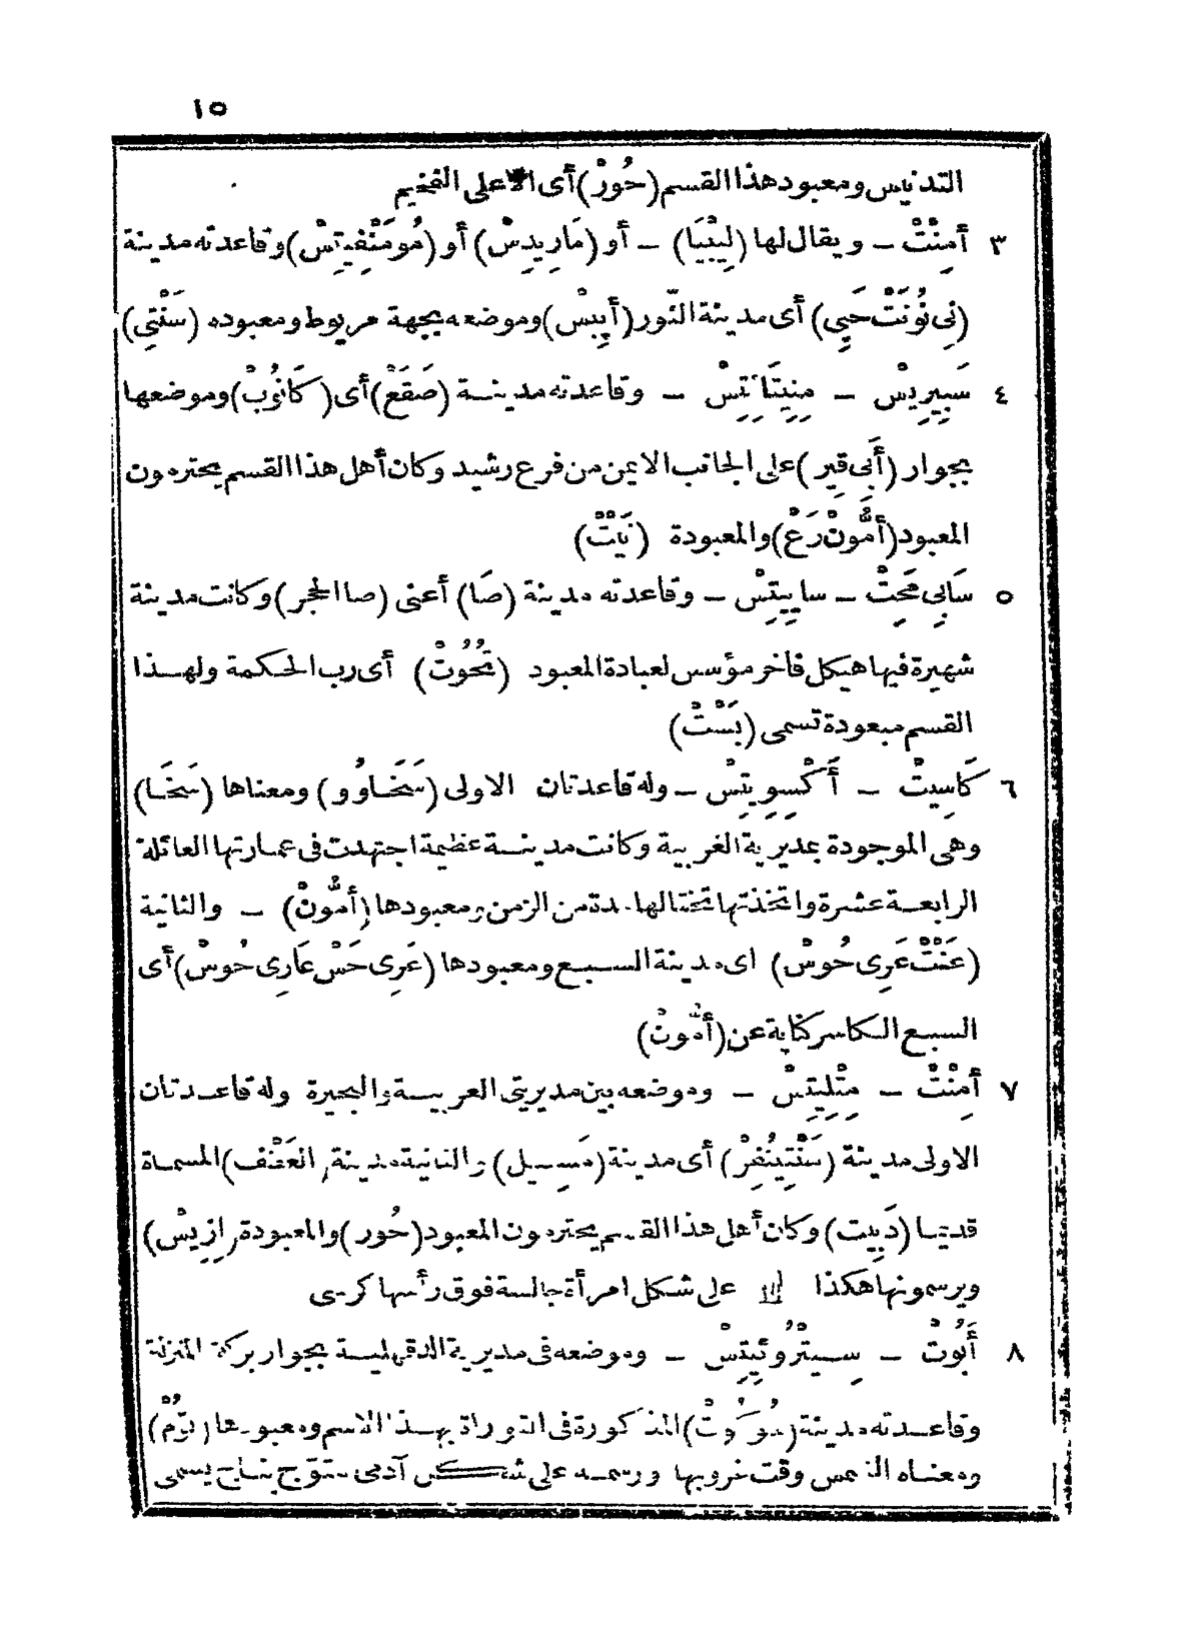 ١٥
التدنيس ومعبود هذا القسم (حُورْ) أى الاعلى الفخيم
٣ أَمِنْتْ – ويقال لها (لِيبْيَا) – أو (مَارِيدِسْ) أو (مُومَنْفِيتِسْ) وقاعدته مدينة
(نِى نُونَتْ حَپِى) أى مدينة الثور (أَپِيسْ) وموضعه بجهة مريوط ومعبوده (سَنْتِى)
٤ سَپِيرِيسْ – مِنِيتَائِتِسْ – وقاعدته مدينة (صَقَعْ) أى (كَانُوبْ) وموضعها
بجوار (أَبى قِير) على الجانب الايمن من فرع رشيد وكان أهل هذا القسم يحترمون
المعبود (أَمُّونْ رَعْ) والمعبودة (نَيْتْ)
٥ سَاپِى مَحِتْ – سايِيتِسْ – وقاعدته مدينة (صَا) أعنى (صا الحجر) وكانت مدينة
شهيرة فيها هيكل فاخر مؤسس لعبادة المعبود (تُحُوتْ) أى رب الحكمة ولهذا
القسم معبودة تسمى (بَسْتْ)
٦ كَاسِيتْ – أَكْسِوِيتِسْ – وله قاعدتان الاولى (سَخَاوُو) ومعناها (سَخَا)
وهى الموجودة بمديرية الغربية وكانت مدينة عظيمة اجتهدت فى عمارتها العائلة
الرابعة عشرة واتخذتها تختالها مدة من الزمن ومعبودها (أَمُّونْ) – والثانية
(عَنْتْ عَرِى حُوسْ) اى مدينة السبع ومعبودها (عَرِى حَسْ عَارِى حُوسْ) أى
السبع الكاسر كناية عن (أَمُّونْ)
٧ أَمِنْتْ – مِتْلِيتِسْ – وموضعه بين مديريتى الغربية والبحيرة وله قاعدتان
الاولى مدينة (سَنْتِينُفِرْ) أى مدينة (مَسِيل) والثانية مدينة (العَفْف) المسماة
قديما (دَبِيت) وكان أهل هذا القسم يحترمون المعبود (حُور) والمعبودة (اِزِيسْ)
ويرسمونها هكذا على شكل امرأة جالسة فوق رأسها كرسى
٨ أَبُوتْ – سِيتْرُوئِيتِسْ – وموضعه فى مديرية الدقهلية بجوار بركة المنزلة
وقاعدته مدينة المذكورة فى التوراة بهذا الاسم ومعبودها (تُومْ)
ومعناه الشمس وقت غروبها ورسمه على شكل آدمى متوّج بتاج يسمى